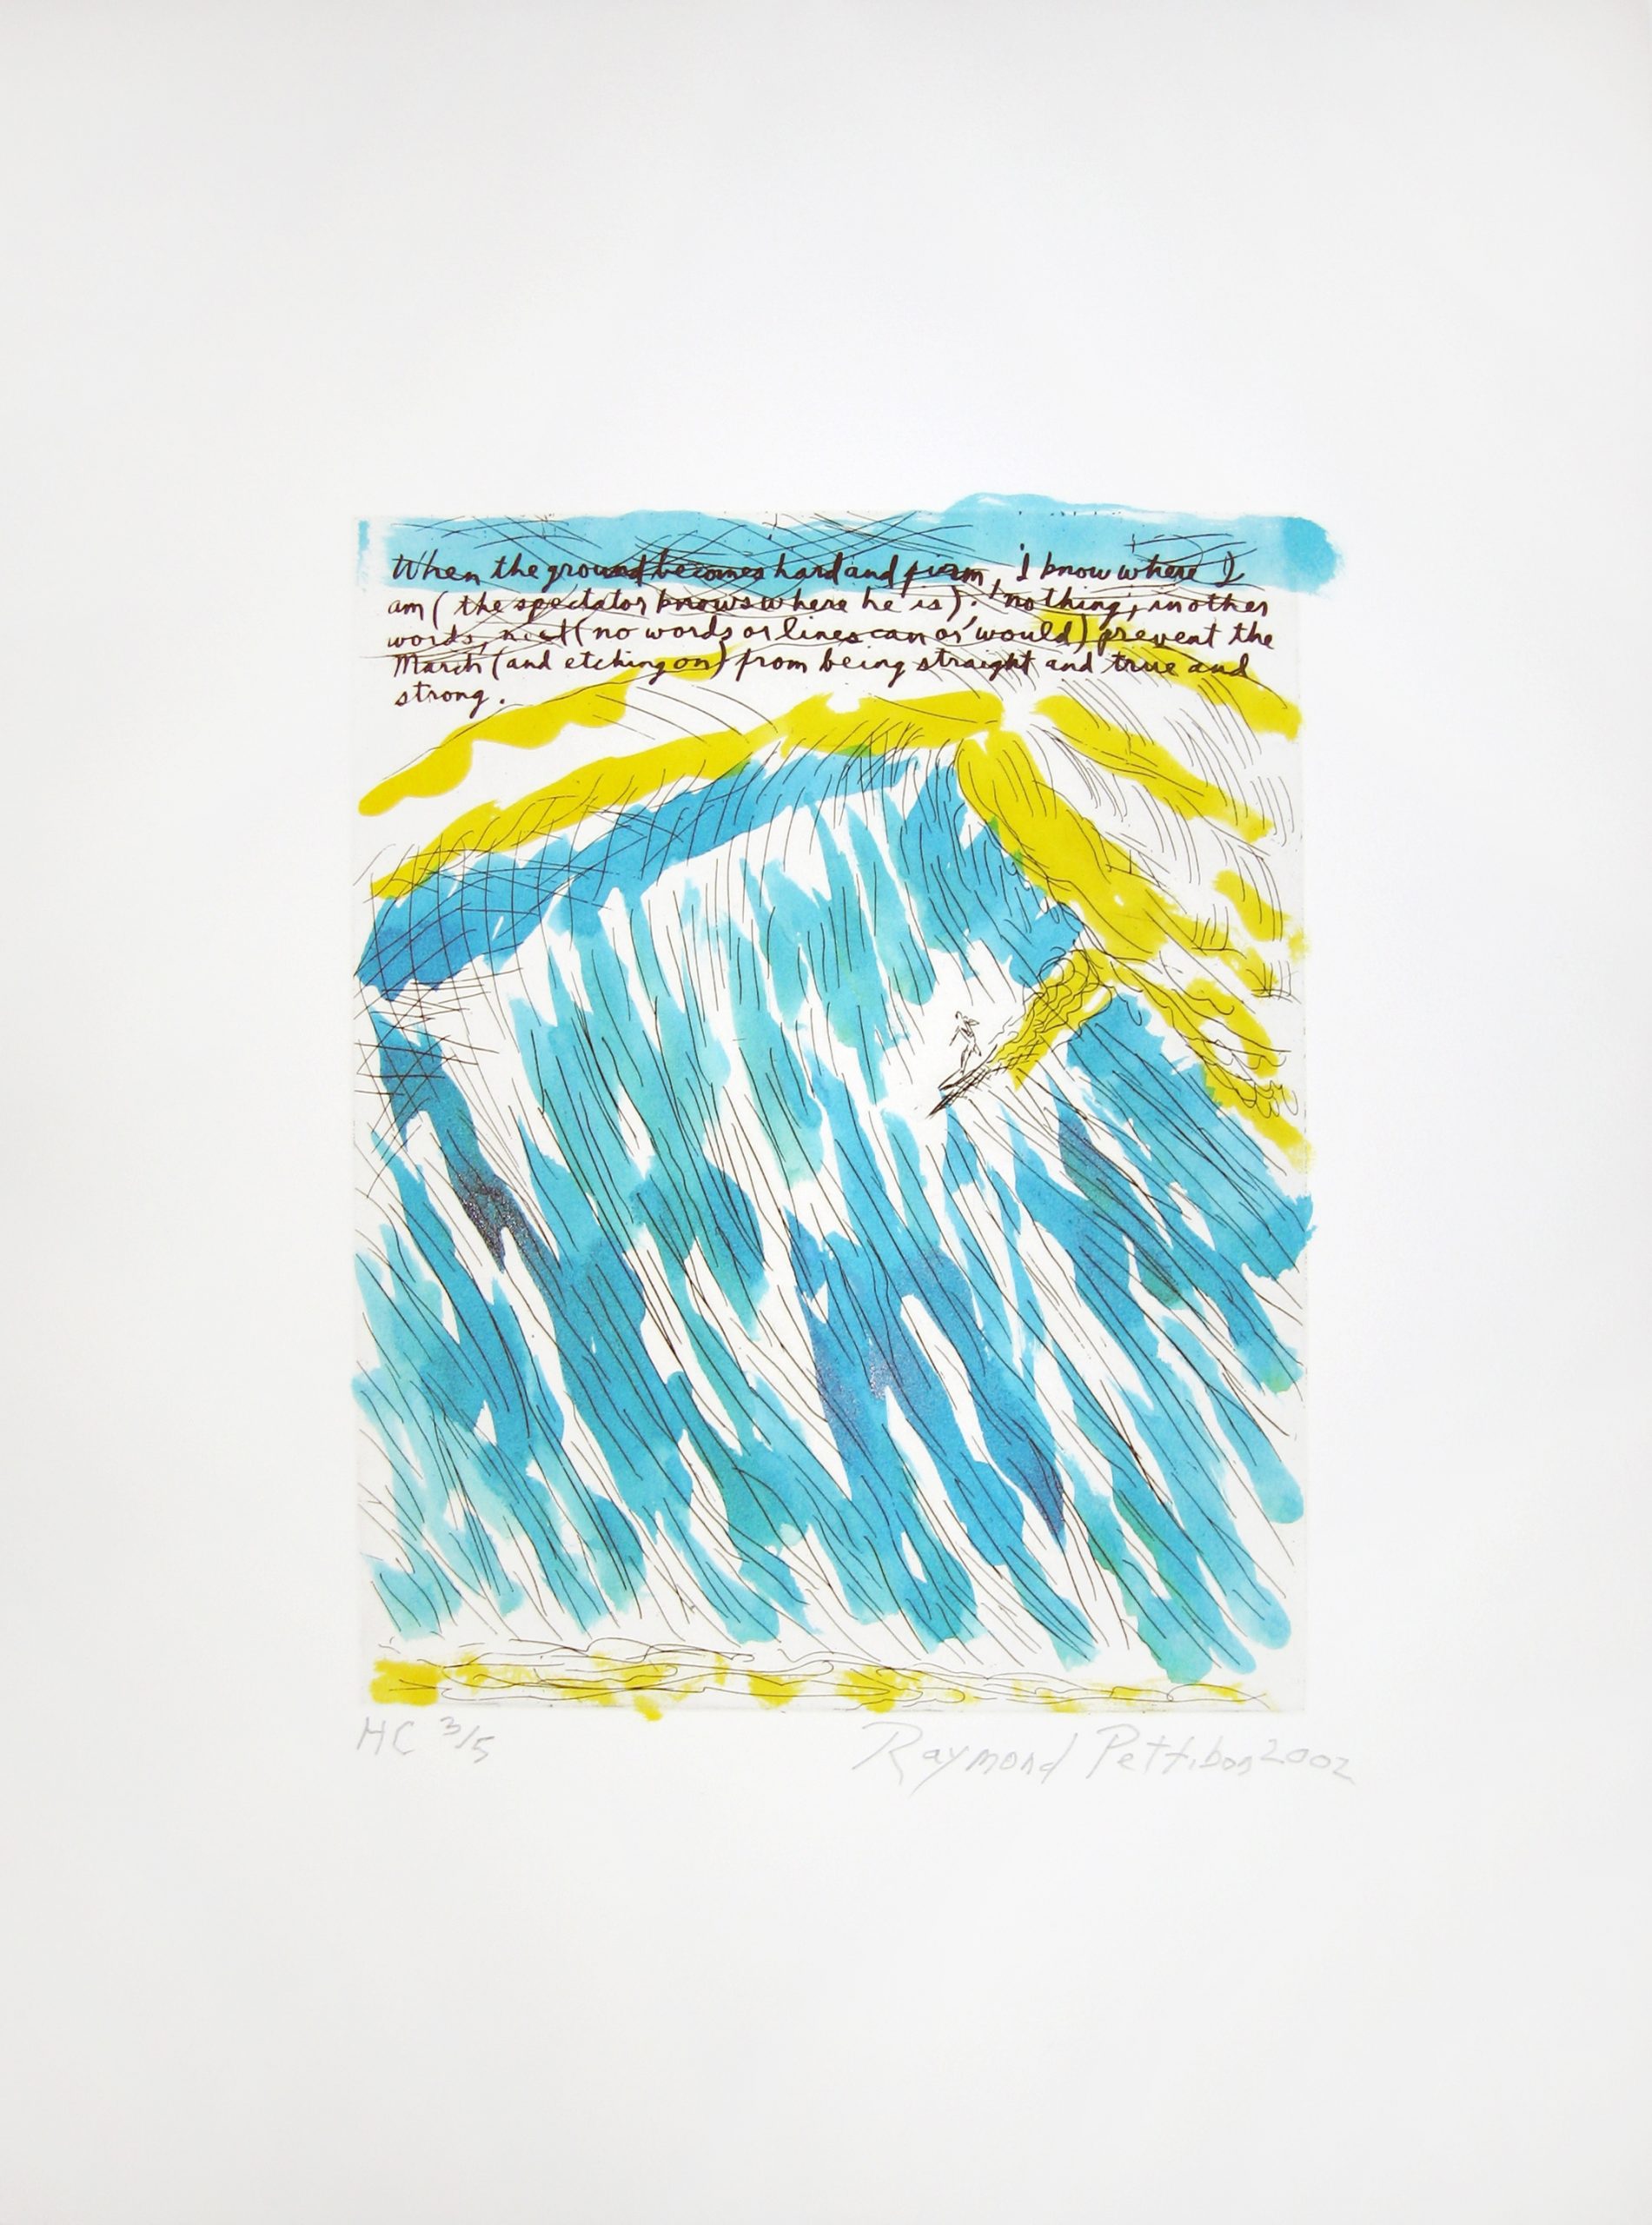 When the ground becomes hard and firm, 'I know where I
am (the spectator knows where he is). 'nothing', in other
words, (no words or lines can or would) prevent the
March (and etching on) from being straight and true and
strong.
HC 3/5
Raymond Pettibon 2002